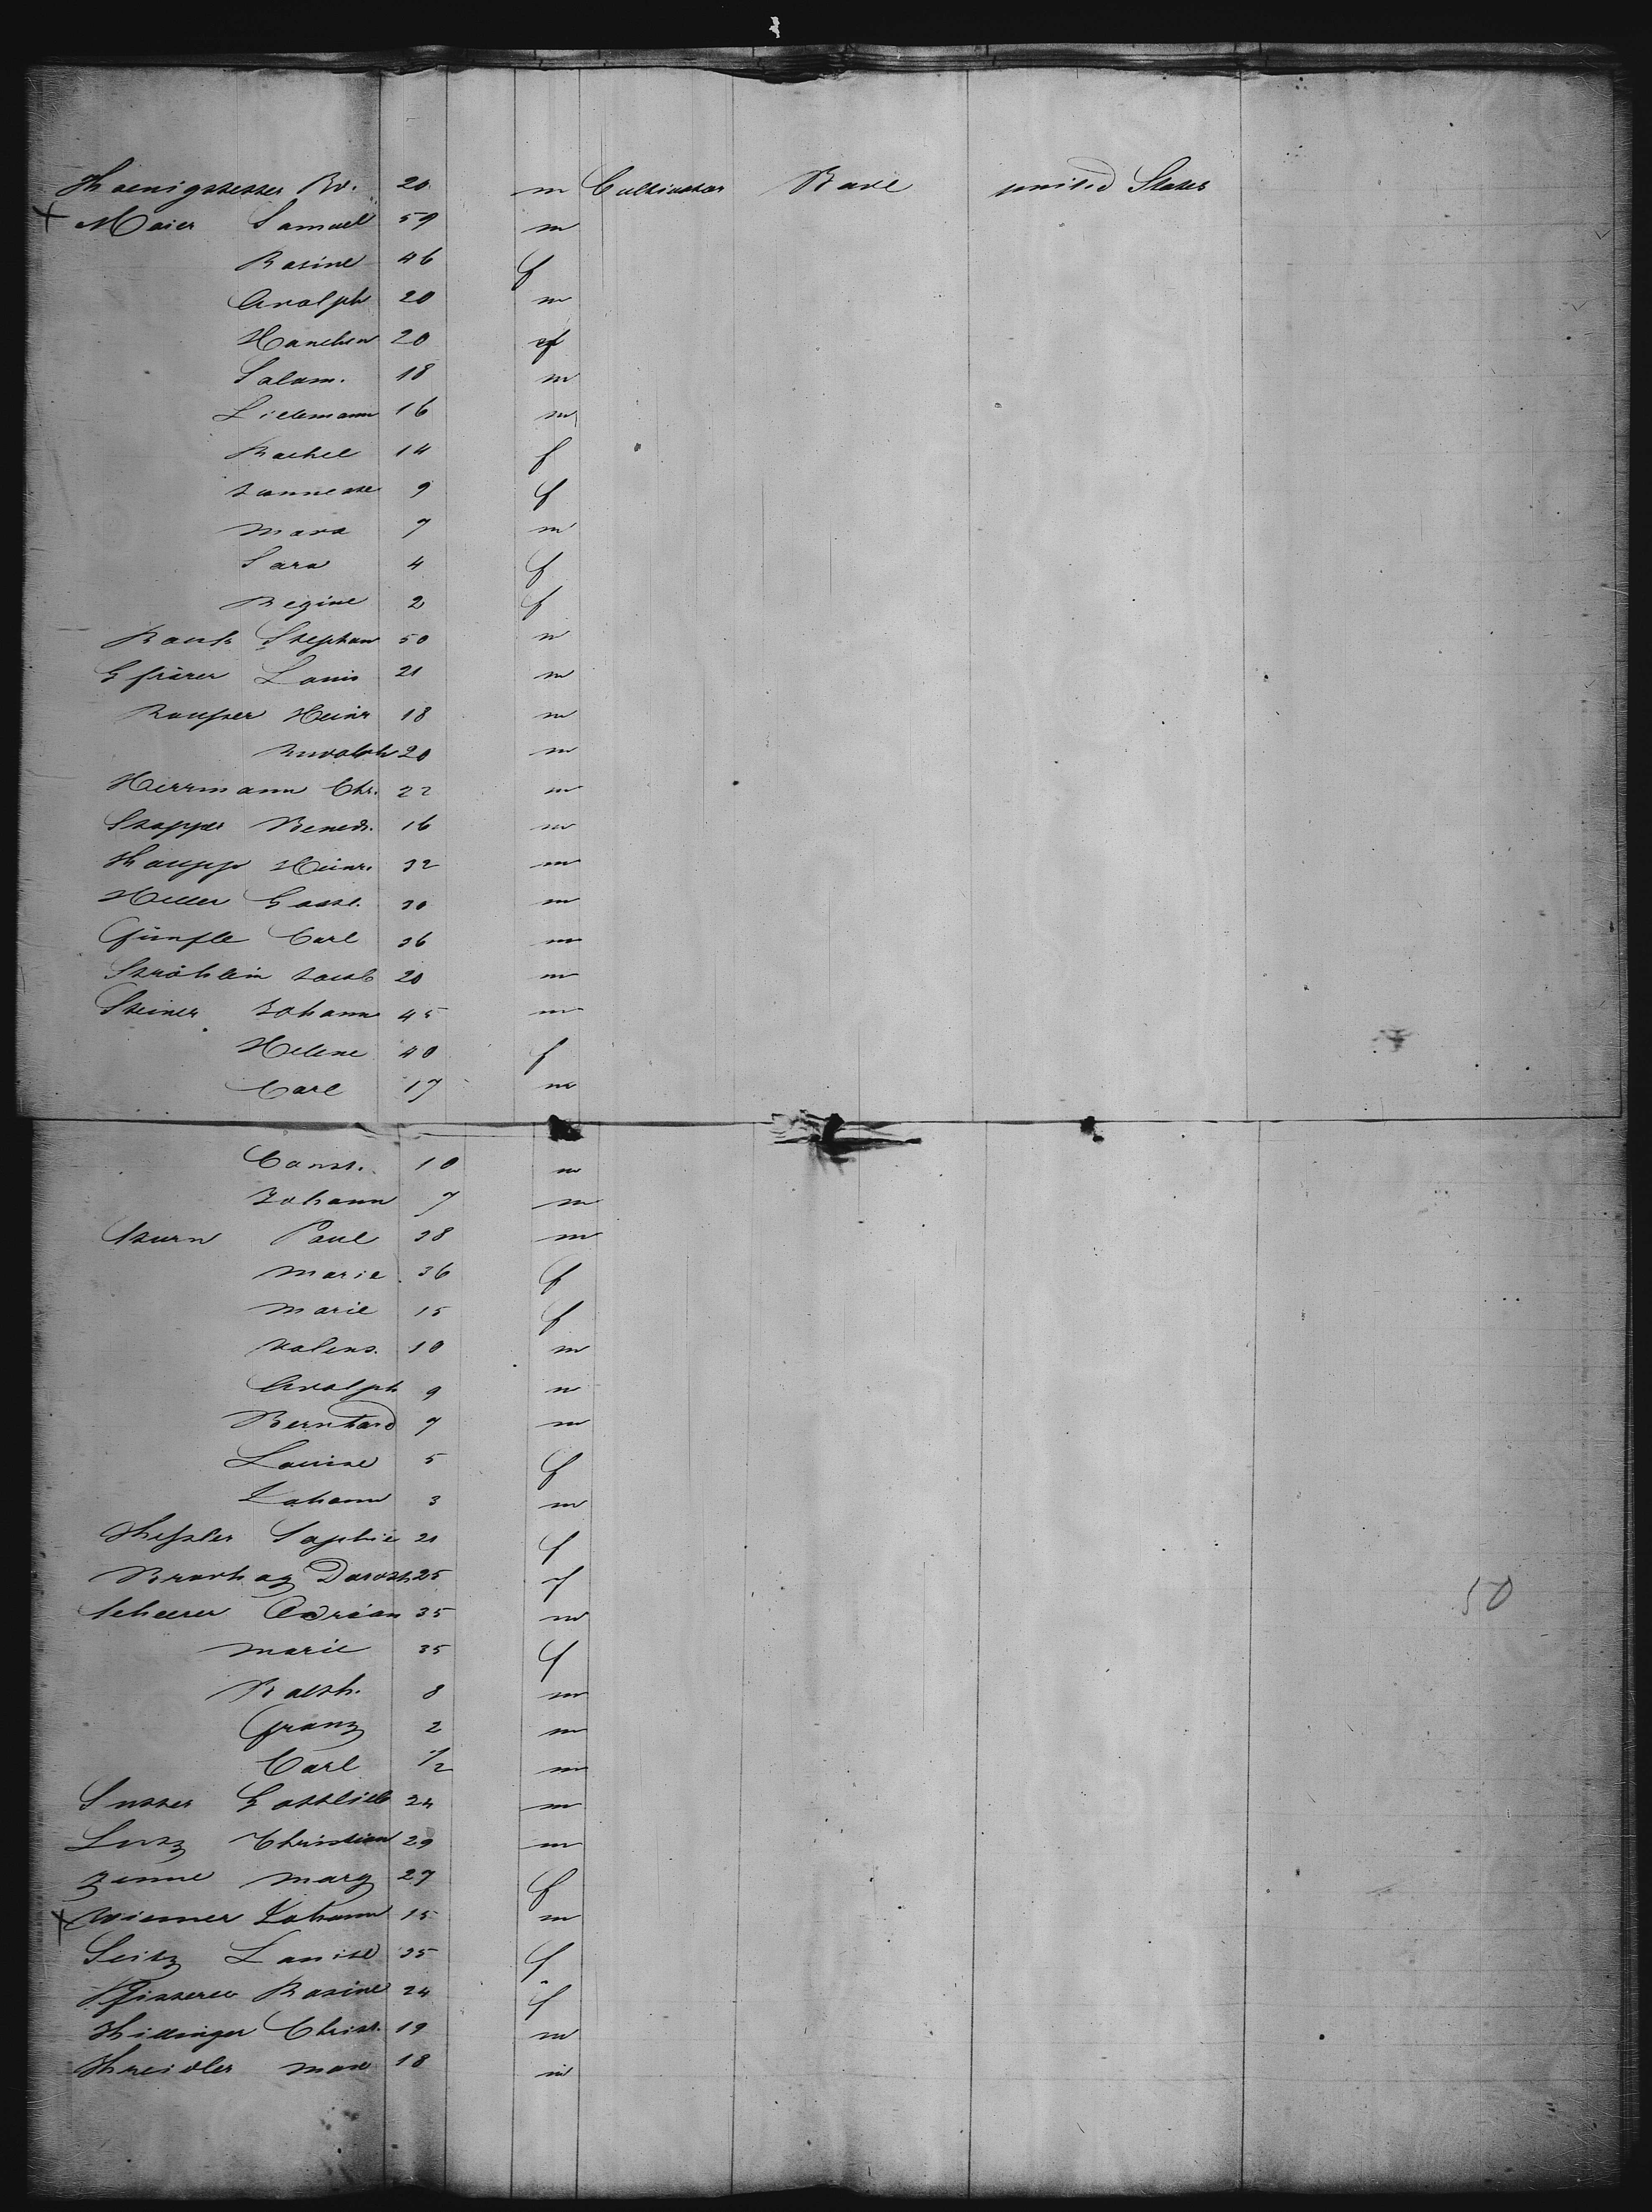 Koenigstetter 20 m Cultivator Bade united States
x Maier Samuel 59 m
Rosine 46 f
Adolph 20 m
Hanchen 20 f
Salam. 18 m
Liebmann 16 m
Rachel 14 f
Jannette 9 f
Marx 7 m
Sara 4 f
Regine 2 f
Bauk Stephan 50 m
Gfrörer Louis 21 m
Heinr 18 m
Rudolph 20 m
Herrmann Chr. 22 m
Stopper Bened. 16 m
Kaupp Heinr. 32 m
Heller Gottl. 30 m
Carl 36 m
Ströhlein Jacob 20 m
Steiner Johann 45 m
Helene 40 f
Carl 17 m
Const. 10 m
Johann 7 m
Sturn Paul 38 m
Marie 36 f
Marie 15 f
Valent. 10 m
Adolph 9 m
Bernhard 7 m
Louise 5 f
Johann 3 m
Keßler Sophie 21 f
Brodhag Doroth 25 f
Scheerer Adrian 35 m
Marie 35 f
Balth. 8 m
Franz 2 m
Carl 1/2 m
Sutter Gottlieb 24 m
Lutz Christian 29 m
Marg 27 f
x Wimmer Johann 15 m
Seitz Louise 35 f
Pfisterer Rosine 24 f
Killinger Christ. 19 m
Kreidler Max 18 m
50